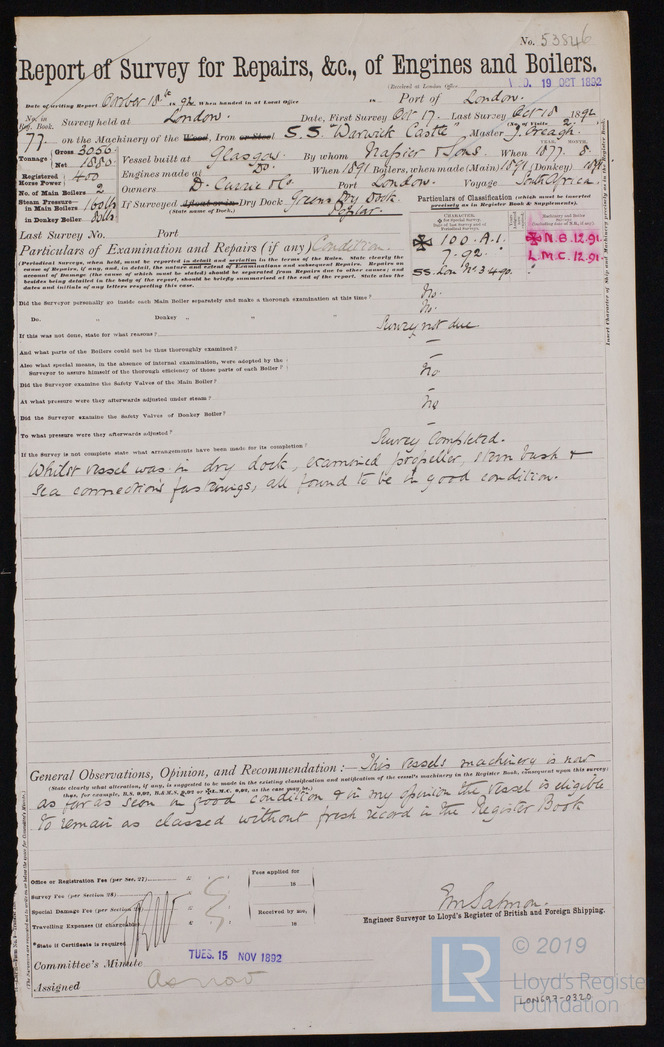 No. 53846
Report of Survey for Repairs, &c., of Engines and Boilers.
(Received at London Office 19 OCT 1892
Date of writing Report October 18th 1892 When handed in at Local Office 18 Port of London.
No. in Reg. Book. Survey held at London. Date, First Survey Oct 17. Last Survey Oct 18 1892
(No. of Visits 2)
77. on the Machinery of the Wood, Iron or Steel S.S. "Warwick Castle" Master J. Creagh.
YEAR. MONTH.
Tonnage Gross 3056. Net 1880. Vessel built at Glasgow. By whom Napier & Sons. When 1877. 8.
Registered Horse Power 400 Engines made at Do. When 1891 Boilers, when made (Main) 1891 (Donkey) 1891
No. of Main Boilers 2 Owners D. Currie & Co Port London. Voyage South Africa.
Steam Pressure in Main Boilers 160lbs If Surveyed Afloat or in Dry Dock Greens Dry Dock Poplar.
in Donkey Boiler 80lbs (State name of Dock.)
Particulars of Classification (which must be inserted precisely as in Register Book & Supplements).
Last Survey No. Port
Particulars of Examination and Repairs (if any) Condition.
CHARACTER.
✠ 100.A.1.
7.92.
SS. Lon. No. 3 4.90.
✠ N.B. 12.91.
L.M.C. 12.91
(Periodical Surveys, when held, must be reported in detail and seriatim in the terms of the Rules. State clearly the
cause of Repairs, if any, and, in detail, the nature and extent of Examinations and subsequent Repairs. Repairs on
account of Damage (the cause of which must be stated) should be separated from Repairs due to other causes; and
besides being detailed in the body of the report, should be briefly summarised at the end of the report. State also the
dates and initials of any letters respecting this case.
Did the Surveyor personally go inside each Main Boiler separately and make a thorough examination at this time? No.
Do. " Donkey " " " No.
If this was not done, state for what reasons? Survey not due
And what parts of the Boilers could not be thus thoroughly examined? —
Also what special means, in the absence of internal examination, were adopted by the
Surveyor to assure himself of the thorough efficiency of those parts of each Boiler? —
Did the Surveyor examine the Safety Valves of the Main Boiler? No
At what pressure were they afterwards adjusted under steam? —
Did the Surveyor examine the Safety Valves of Donkey Boiler? No
To what pressure were they afterwards adjusted? —
If the Survey is not complete state what arrangements have been made for its completion? Survey Completed.
Whilst vessel was in dry dock, examined propeller, stern bush &
sea connections fastenings, all found to be in good condition.
General Observations, Opinion, and Recommendation:— This vessels machinery is now
(State clearly what alteration, if any, is suggested to be made in the existing classification and notification of the vessel's machinery in the Register Book, consequent upon this survey;
as far as seen in good condition & in my opinion the vessel is eligible
to remain as classed without fresh record in the Register Book
Office or Registration Fee (per Sec. 27)
Survey Fee (per Section 28)
Special Damage Fee (per Section 28)
Travelling Expenses (if chargeable)
Fees applied for
18
Received by me,
18
*State if Certificate is required
E.M. Salmon.
Engineer Surveyor to Lloyd's Register of British and Foreign Shipping.
Committee's Minute TUES. 15 NOV 1892
Assigned As now
LR © 2019
Lloyd's Register
Foundation
LON693-0320